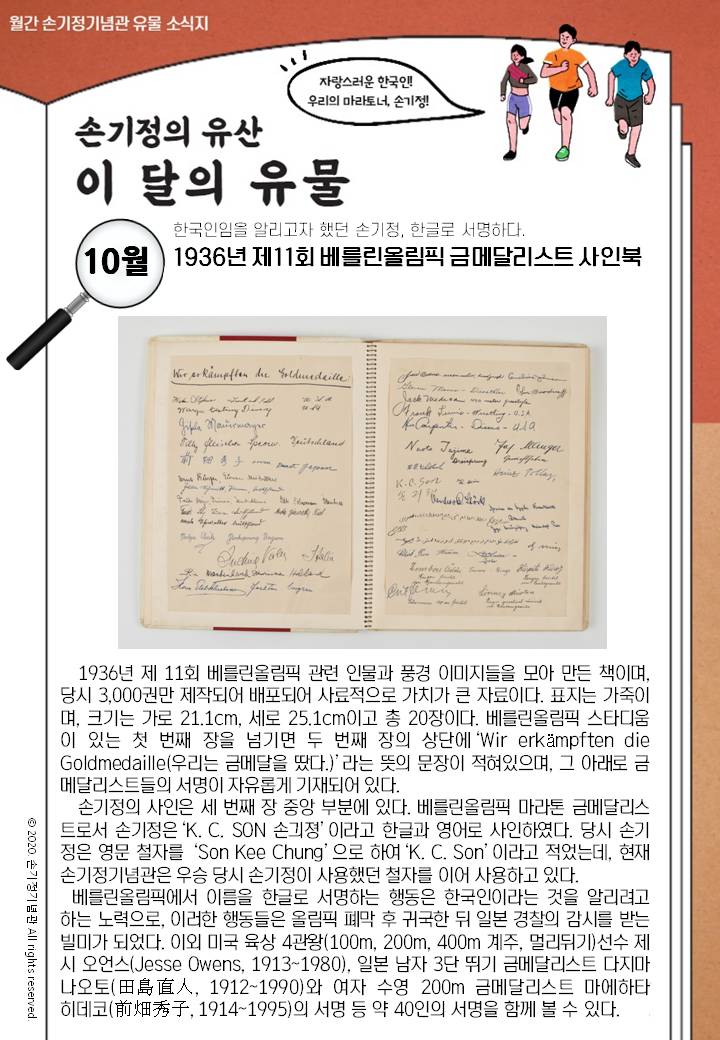 월간 손기정기념관 유물 소식지
자랑스러운 한국인!
우리의 마라토너, 손기정!
손기정의 유산
이 달의 유물
10월
한국인임을 알리고자 했던 손기정, 한글로 서명하다.
1936년 제11회 베를린올림픽 금메달리스트 사인북
Wir erkämpften die Goldmedaille
Jack Medica
Frank Lewis - Wrestling - U.S.A
Ken Carpenter - Discus - USA
Naoto Tajima
K. C. SON
1936년 제 11회 베를린올림픽 관련 인물과 풍경 이미지들을 모아 만든 책이며,
당시 3,000권만 제작되어 배포되어 사료적으로 가치가 큰 자료이다. 표지는 가죽이
며, 크기는 가로 21.1cm, 세로 25.1cm이고 총 20장이다. 베를린올림픽 스타디움
이 있는 첫 번째 장을 넘기면 두 번째 장의 상단에 ‘Wir erkämpften die
Goldmedaille(우리는 금메달을 땄다.)’ 라는 뜻의 문장이 적혀있으며, 그 아래로 금
메달리스트들의 서명이 자유롭게 기재되어 있다.
손기정의 사인은 세 번째 장 중앙 부분에 있다. 베를린올림픽 마라톤 금메달리스
트로서 손기정은 ‘K. C. SON 손긔졍’ 이라고 한글과 영어로 사인하였다. 당시 손기
정은 영문 철자를 ‘Son Kee Chung’ 으로 하여 ‘K. C. Son’ 이라고 적었는데, 현재
손기정기념관은 우승 당시 손기정이 사용했던 철자를 이어 사용하고 있다.
베를린올림픽에서 이름을 한글로 서명하는 행동은 한국인이라는 것을 알리려고
하는 노력으로, 이러한 행동들은 올림픽 폐막 후 귀국한 뒤 일본 경찰의 감시를 받는
빌미가 되었다. 이외 미국 육상 4관왕(100m, 200m, 400m 계주, 멀리뛰기)선수 제
시 오언스(Jesse Owens, 1913~1980), 일본 남자 3단 뛰기 금메달리스트 다지마
나오토(田島直人, 1912~1990)와 여자 수영 200m 금메달리스트 마에하타
히데코(前畑秀子, 1914~1995)의 서명 등 약 40인의 서명을 함께 볼 수 있다.
© 2020. 손기정기념관 All rights reserved